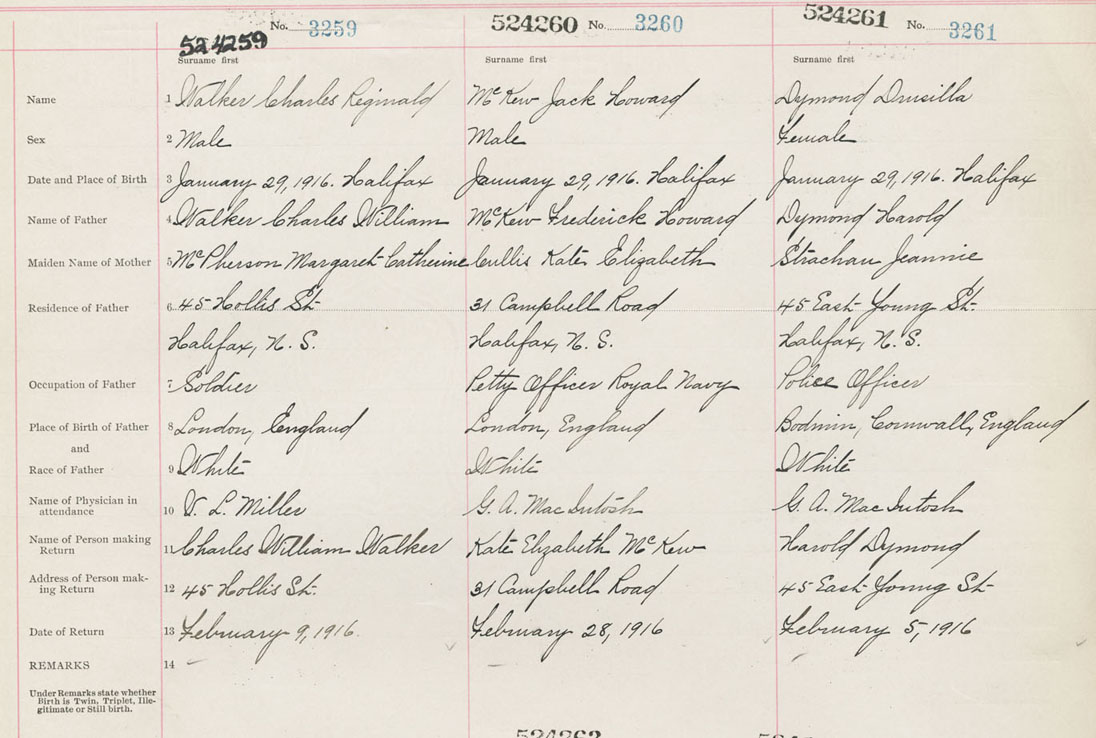 No. 3259 524260 No. 3260 524261 No. 3261
524259
Surname first Surname first Surname first
Name 1 Walker Charles Reginald McKew Jack Howard Dymond Drusilla
Sex 2 Male Male Female
Date and Place of Birth 3 January 29, 1916. Halifax January 29, 1916. Halifax January 29, 1916. Halifax
Name of Father 4 Walker Charles William McKew Frederick Howard Dymond Harold
Maiden Name of Mother 5 McPherson Margaret Catherine Cullis Kate Elizabeth Strachan Jeannie
Residence of Father 6 45 Hollis St. 31 Campbell Road 45 East Young St.
Halifax, N. S. Halifax, N. S. Halifax, N. S.
Occupation of Father 7 Soldier Petty Officer Royal Navy Police Officer
Place of Birth of Father 8 London, England London, England Bodmin, Cornwall, England
and
Race of Father 9 White White White
Name of Physician in
attendance 10 V. L. Miller G. A. MacIntosh G. A. MacIntosh
Name of Person making
Return 11 Charles William Walker Kate Elizabeth McKew Harold Dymond
Address of Person mak-
ing Return 12 45 Hollis St. 31 Campbell Road 45 East Young St
Date of Return 13 February 9, 1916. February 28, 1916 February 5, 1916
REMARKS 14
Under Remarks state whether
Birth is Twin, Triplet, Ille-
gitimate or Still birth.